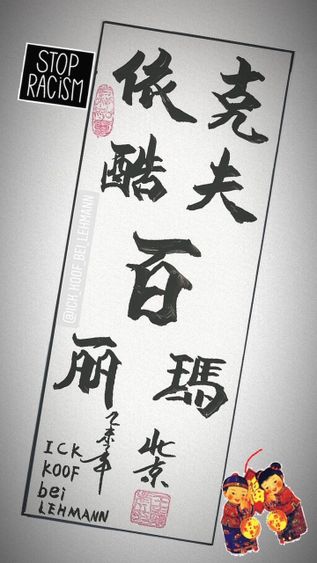 STOP
RACISM
依克
酷夫
百
丽瑪
乙未年
北京
ICK
KOOF
bei
LEHMANN
@ICK_KOOF_BEI_LEHMANN